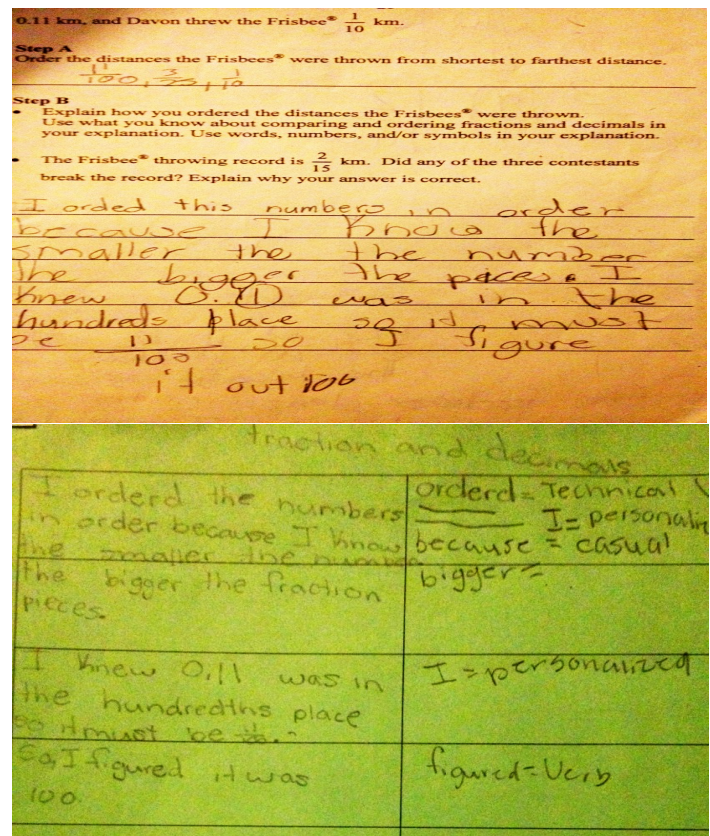 0.11 km, and Davon threw the Frisbee® 1/10 km.
Step A
Order the distances the Frisbees® were thrown from shortest to farthest distance.
11/100, 3/25, 1/10
Step B
• Explain how you ordered the distances the Frisbees® were thrown.
Use what you know about comparing and ordering fractions and decimals in
your explanation. Use words, numbers, and/or symbols in your explanation.
• The Frisbee® throwing record is 2/15 km. Did any of the three contestants
break the record? Explain why your answer is correct.
I orded this numbers in order
because I know the
smaller the the number
the bigger the peaces. I
knew 0.11 was in the
hundreds place so it must
be 11/100 so I figure
it out 100
fraction and decimals
I orderd the numbers
in order because I know
the smaller the number
the bigger the fraction
pieces.
I knew 0.11 was in
the hundredths place
so it must be 11/100.
So, I figured it was
100.
orderd = Technical
I = personaliz
because = casual
bigger =
I = personalized
figured = Verb